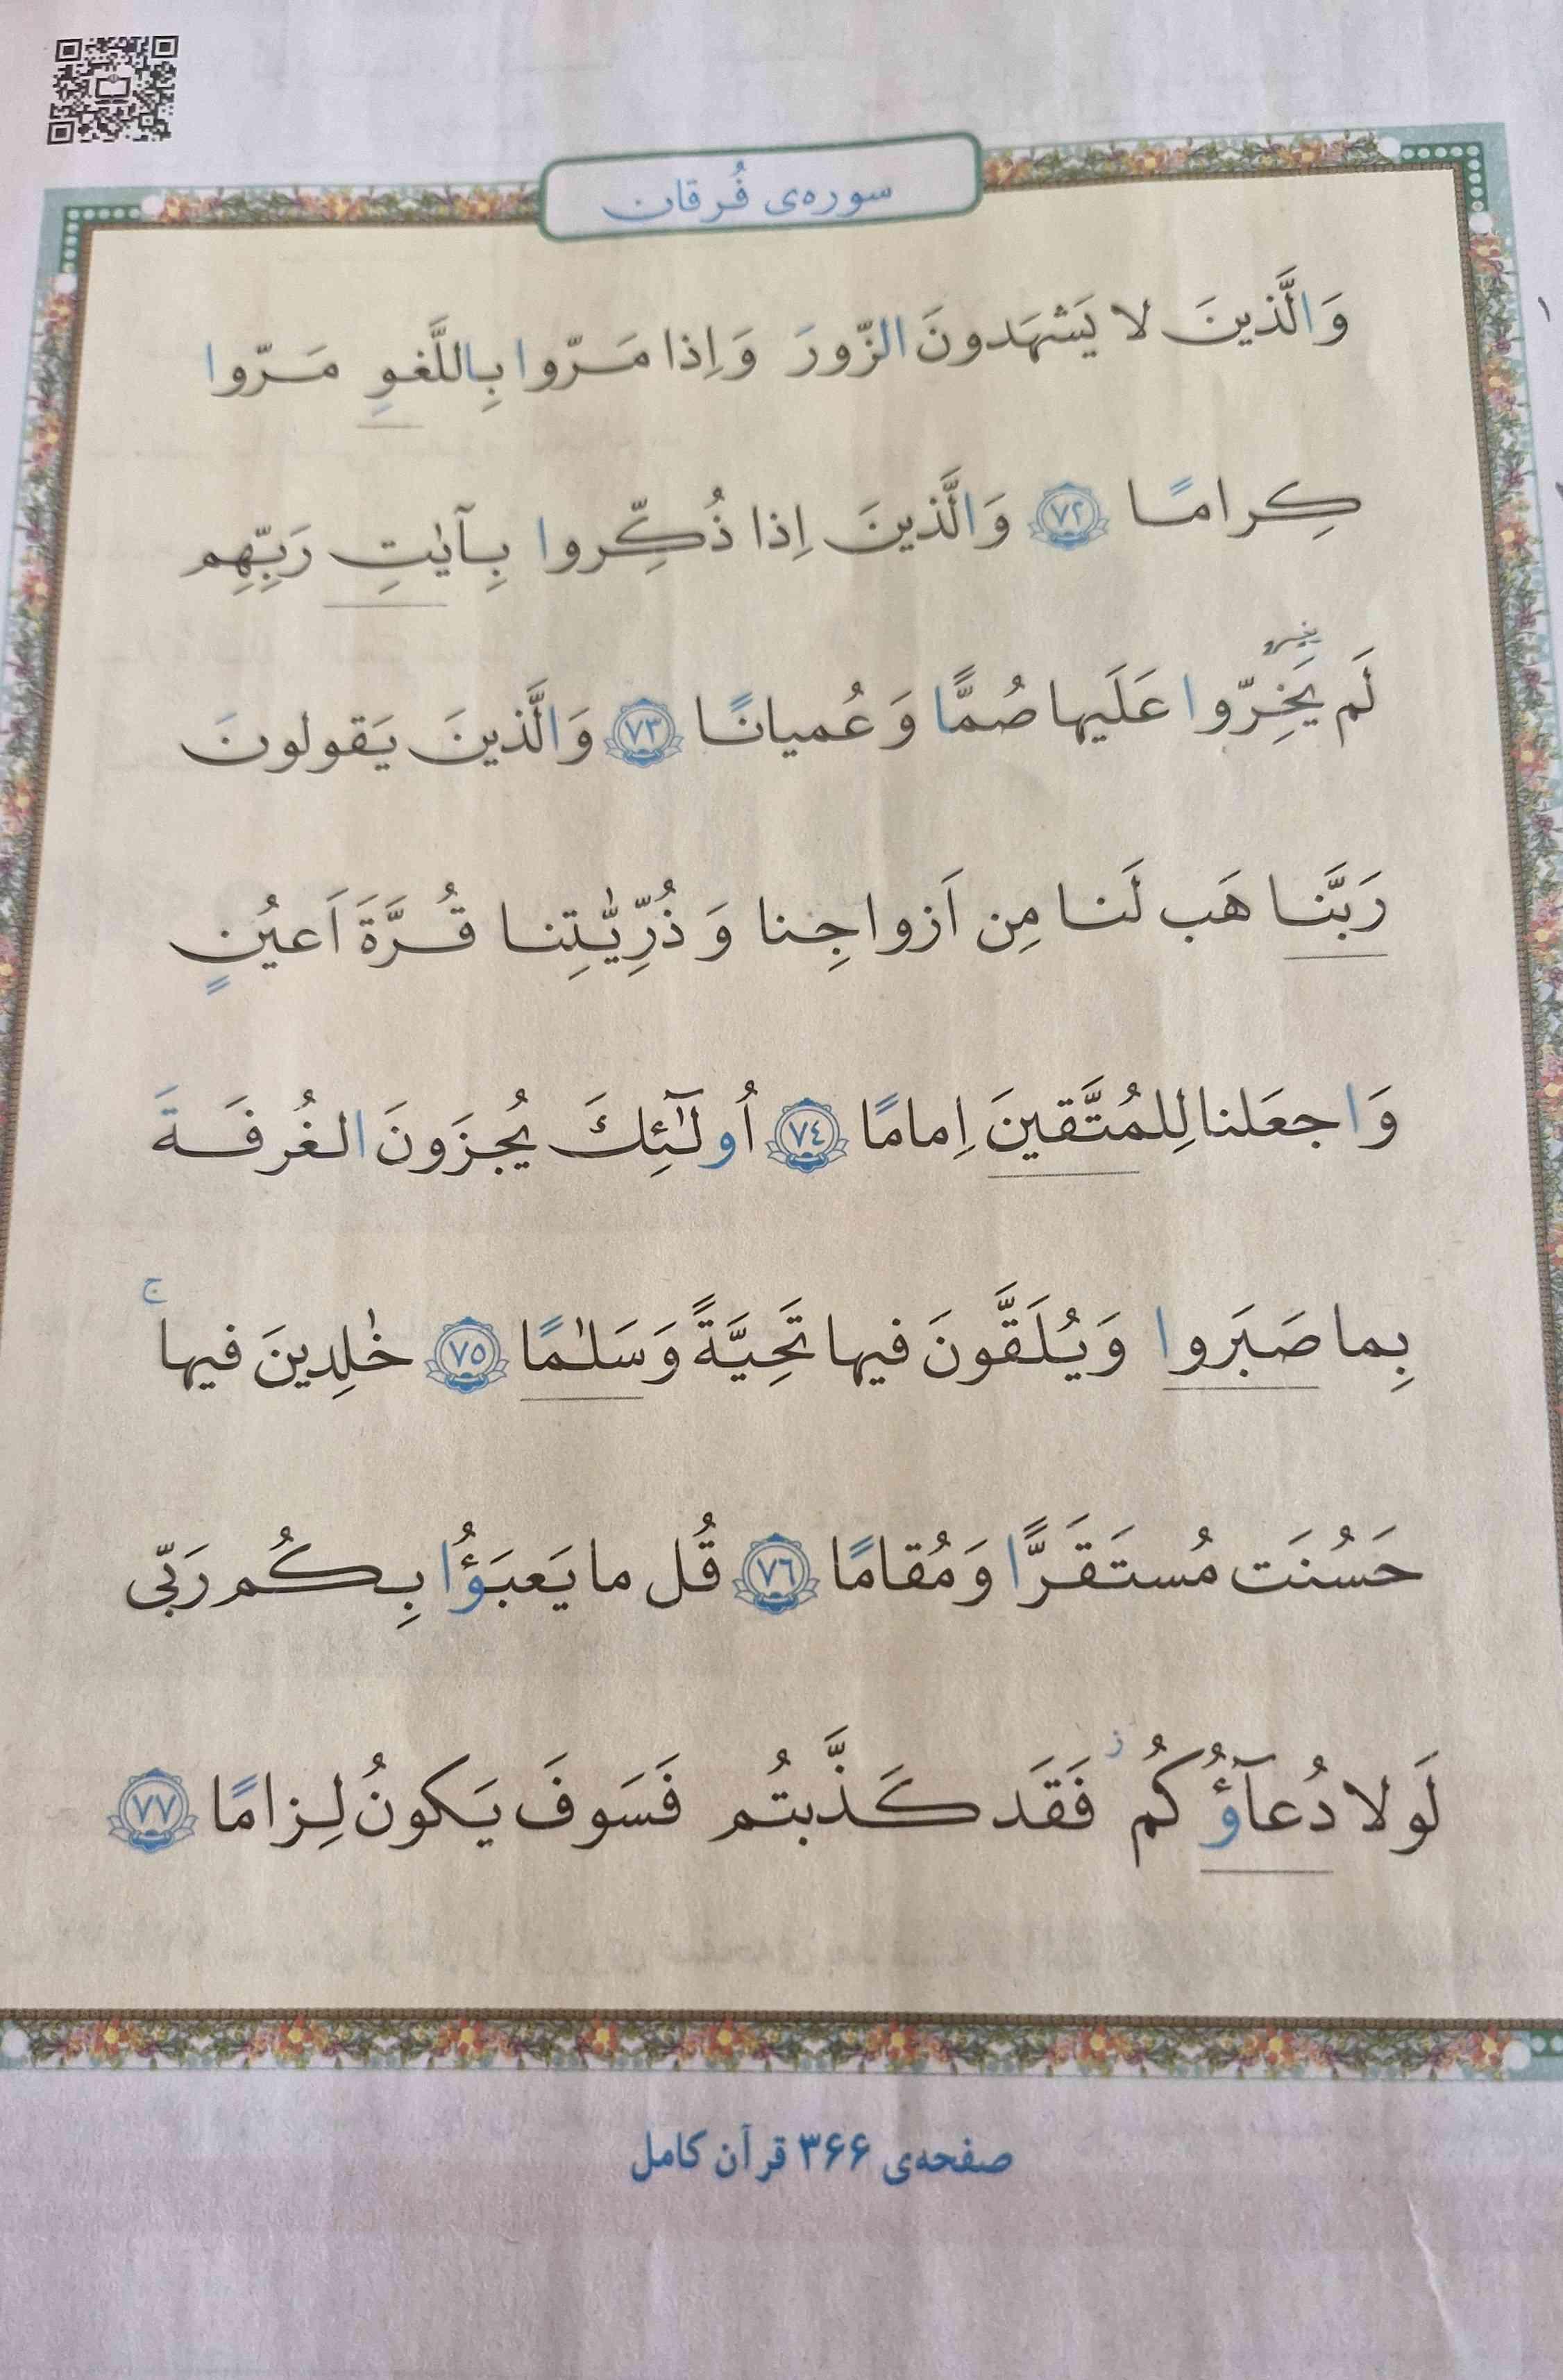 سوره‌ی فُرقان
وَالَّذینَ لا یَشهَدونَ الزّورَ وَ اِذا مَرّوا بِاللَّغوِ مَرّوا
کِرامًا ٧٢ وَالَّذینَ اِذا ذُکِّروا بِآیٰتِ رَبِّهِم
لَم یَخِرّوا عَلَیها صُمًّا وَ عُمیانًا ٧٣ وَالَّذینَ یَقولونَ
رَبَّنا هَب لَنا مِن اَزواجِنا وَ ذُرِّیّٰتِنا قُرَّةَ اَعیُنٍ
وَاجعَلنا لِلمُتَّقینَ اِمامًا ٧٤ اُولٰٓئِكَ یُجزَونَ الغُرفَةَ
بِما صَبَروا وَ یُلَقَّونَ فیها تَحِیَّةً وَ سَلٰمًا ٧٥ خٰلِدینَ فیها ج
حَسُنَت مُستَقَرًّا وَ مُقامًا ٧٦ قُل ما یَعبَؤُا بِکُم رَبّی
لَولا دُعآؤُکُم ز فَقَد کَذَّبتُم فَسَوفَ یَکونُ لِزامًا ٧٧
صفحه‌ی ۳۶۶ قرآن کامل